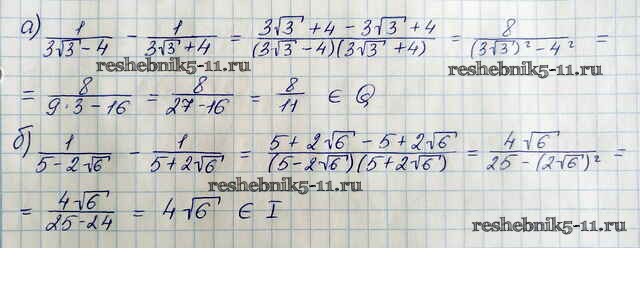 а) 1/(3√3 - 4) - 1/(3√3 + 4) = (3√3 + 4 - 3√3 + 4)/((3√3 - 4)(3√3 + 4)) = 8/((3√3)² - 4²) =
reshebnik5-11.ru
reshebnik5-11.ru
= 8/(9·3 - 16) = 8/(27 - 16) = 8/11 ∈ Q
б) 1/(5 - 2√6) - 1/(5 + 2√6) = (5 + 2√6 - 5 + 2√6)/((5 - 2√6)(5 + 2√6)) = 4√6/(25 - (2√6)²) =
reshebnik5-11.ru
= 4√6/(25 - 24) = 4√6 ∈ I
reshebnik5-11.ru